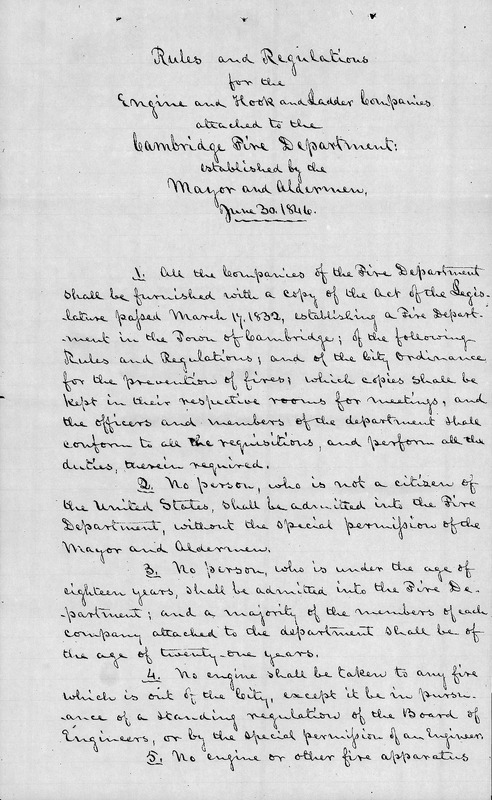 Rules and Regulations
for the
Engine and Hook and Ladder Companies
attached to the
Cambridge Fire Department:
established by the
Mayor and Aldermen,
June 30. 1846.
1. All the Companies of the Fire Department
shall be furnished with a copy of the Act of the Legis-
-lature passed March 17, 1832, establishing a Fire Depart-
-ment in the Town of Cambridge; of the following
Rules and Regulations; and of the City Ordinance
for the prevention of fires; which copies shall be
kept in their respective rooms for meetings, and
the officers and members of the department shall
conform to all the requisitions, and perform all the
duties, therein required.
2. No person, who is not a citizen of
the United States, shall be admitted into the Fire
Department, without the special permission of the
Mayor and Aldermen.
3. No person, who is under the age of
eighteen years, shall be admitted into the Fire De-
-partment; and a majority of the members of each
company attached to the department shall be of
the age of twenty-one years.
4. No engine shall be taken to any fire
which is out of the City, except it be in pursu-
-ance of a standing regulation of the Board of
Engineers, or by the special permission of an Engineer.
5. No engine or other fire apparatus